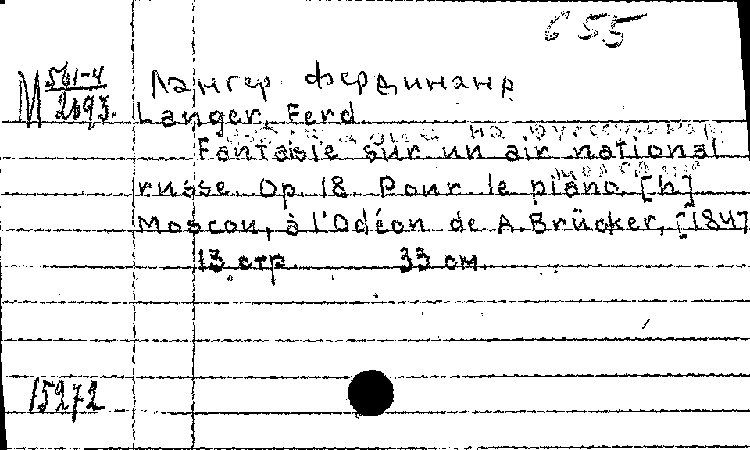 655
М 561-4
2093.
Лангер Фердинанд
Langer, Ferd.
Fantaisie sur un air national
russe. Op. 18. Pour le piano. [н]
Moscou, à l'Odéon de A. Brücker, [184
13 стр. 33 см.
15272